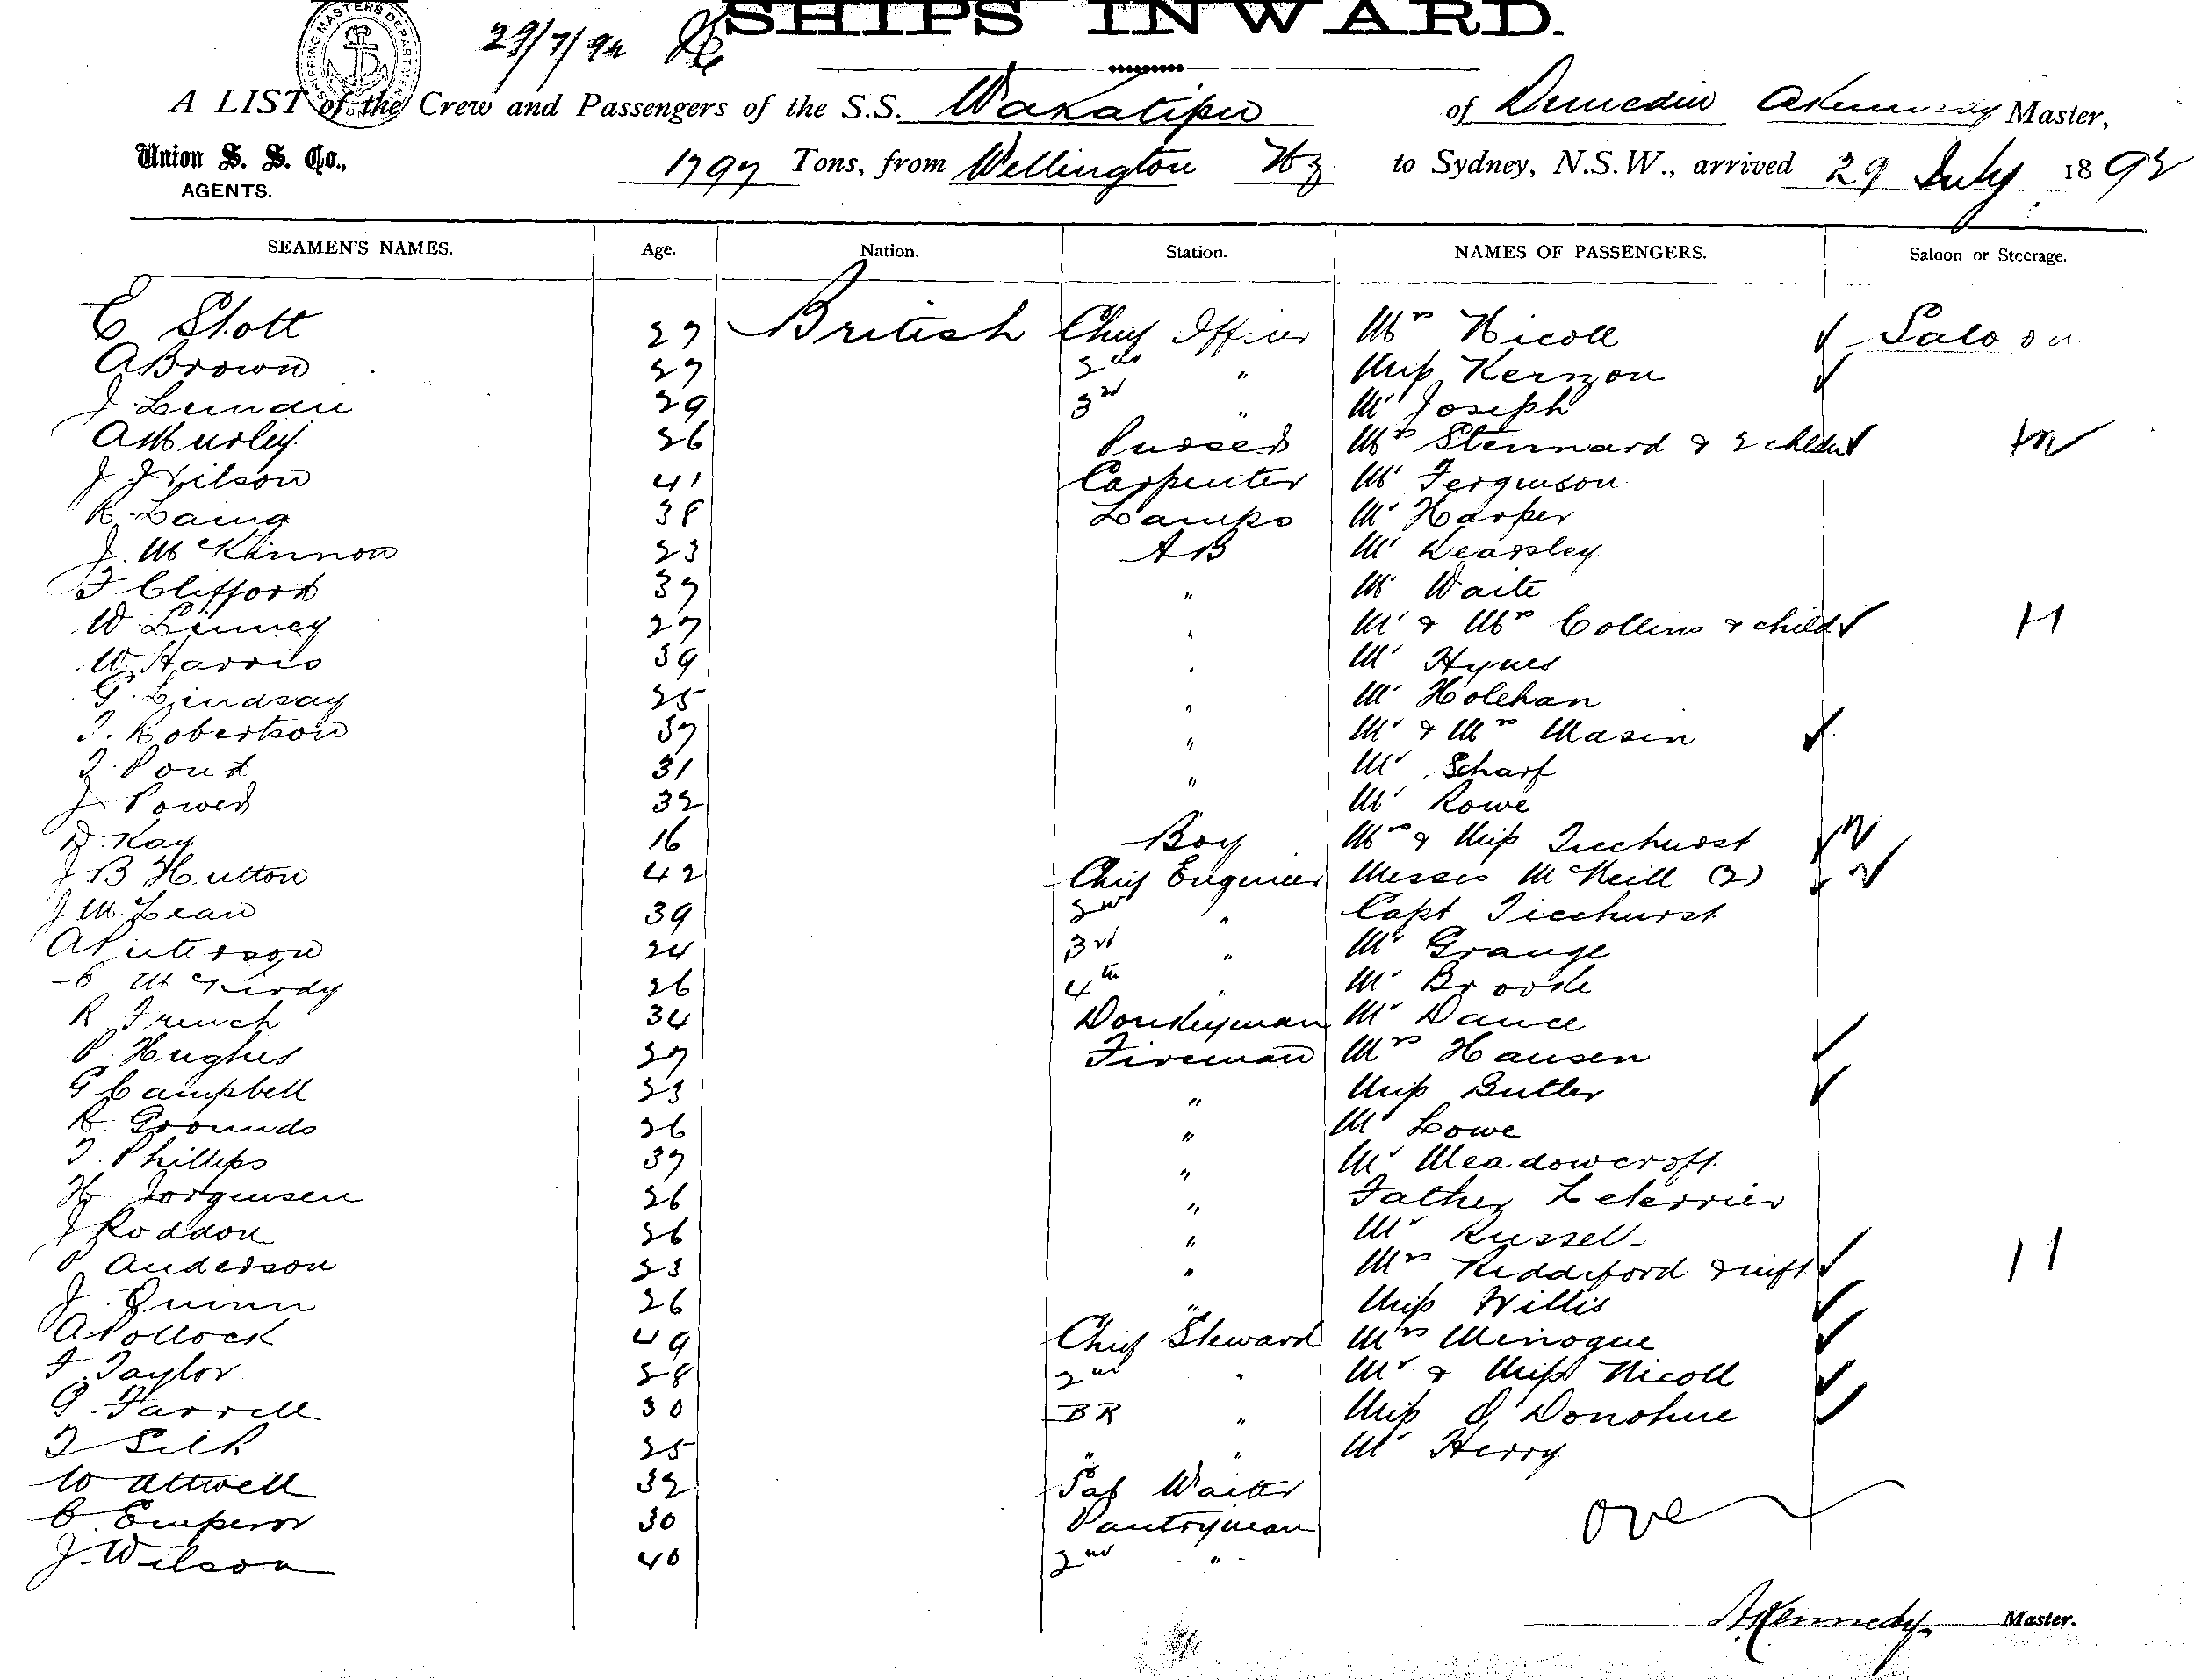 SHIPS INWARD.
SHIPPING MASTERS DEPARTMENT
29/7/92
A LIST of the Crew and Passengers of the S.S. Wakatipu of Dunedin A Kennedy Master,
Union S. S. Co., AGENTS.
1797 Tons, from Wellington NZ. to Sydney, N.S.W., arrived 29 July 1892
SEAMEN'S NAMES. Age. Nation. Station. NAMES OF PASSENGERS. Saloon or Steerage.
E Stott 27 British Chief Officer Mrs Nicoll Saloon
A Brown 27 2nd " Miss Kerzon
J 29 3rd " Mr Joseph
A Murley 26 Purser Mrs Stennard & 2 childn
J Wilson 41 Carpenter Mr Ferguson
R Laing 38 Lamps Mr Harper
J. McKinnon 23 AB Mr Dearsley
F Clifford 37 " Mr Waite
W Linney 27 " Mr & Mrs Collins & child
W. Harris 39 " Mr Hynes
G. Lindsay 25 " Mr Holehan
T. Robertson 37 " Mr & Mrs Masin
T. Pond 31 " Mr Scharf
J Power 32 Mr Rowe
D. Kay 16 Boy Mrs & Miss Ticehurst
J B Hutton 42 Chief Engineer Messrs McNeill (2)
J McLean 39 2nd " Capt Ticehurst
A Peterson 24 3rd " Mr Grange
26 4th " Mr Brooke
R French 34 Donkeyman Mr Dance
P. Hughes 27 Fireman Mrs Hansen
G Campbell 23 " Miss Butler
R. Grounds 26 " Mr Lowe
T. Phillips 37 " Mr Meadowcroft.
H Jorgensen 26 " Father Leterrier
J Roddon 26 " Mr Russell
P Anderson 23 " Mrs Riddiford & inft
J. Quinn 26 " Miss Willis
A Pollock 49 Chief Steward Mrs Minogue
F. Taylor 28 2nd " Mr & Miss Nicoll
G. Farrell 30 BR " Miss O'Donohue
T Silk 25 " " Mr Herry
W Attwell 32 Waiter
C. Emperor 30 Pantryman over
J. Wilson 40 2nd "
A Kennedy Master.